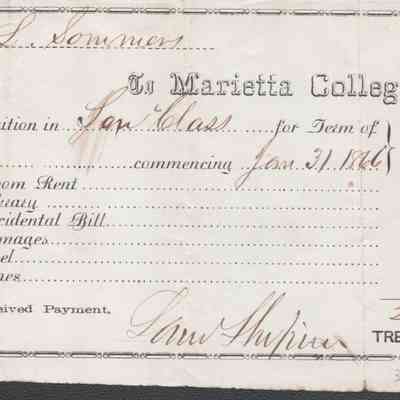 L. Sommers
To Marietta Colleg
ition in Law Class for Term of
commencing Jan. 31 1866
om Rent
brary
cidental Bill
mages
el
nes
eived Payment,
TRE